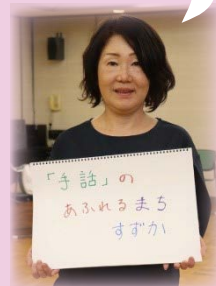 「手話」の
あふれるまち
すずか